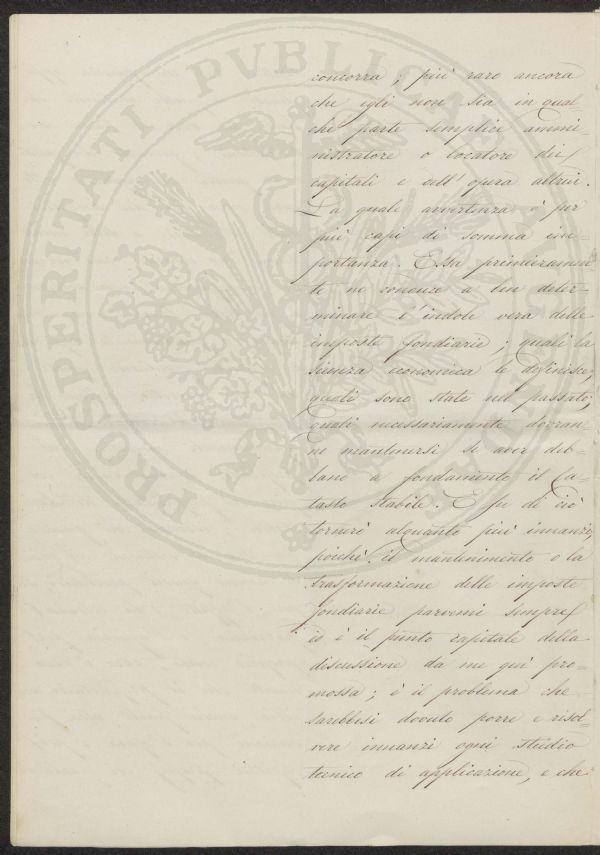 PROSPERITATI PVBLICAE
concorra; più raro ancora
che egli non sia in qual
che parte semplice ammi-
nistratore o locatore dei
capitali e dell'opera altrui.
La quale avvertenza è per
più capi di somma im-
portanza. Essa primieramen
te ne conduce a ben deter-
minare l'indole vera delle
imposte fondiarie; quali la
scienza economica le definisce,
quali sono state nel passato,
quali necessariamente dovran-
no mantenersi se aver deb-
bano a fondamento il Ca-
tasto stabile. E su di ciò
tornerò alquanto più innanzi,
poichè il mantenimento o la
trasformazione delle imposte
fondiarie parvemi sempre
è il punto capitale della
discussione da me quì pro-
mossa; è il problema che
sarebbesi dovuto porre e risol-
vere innanzi ogni studio
tecnico di applicazione, e che